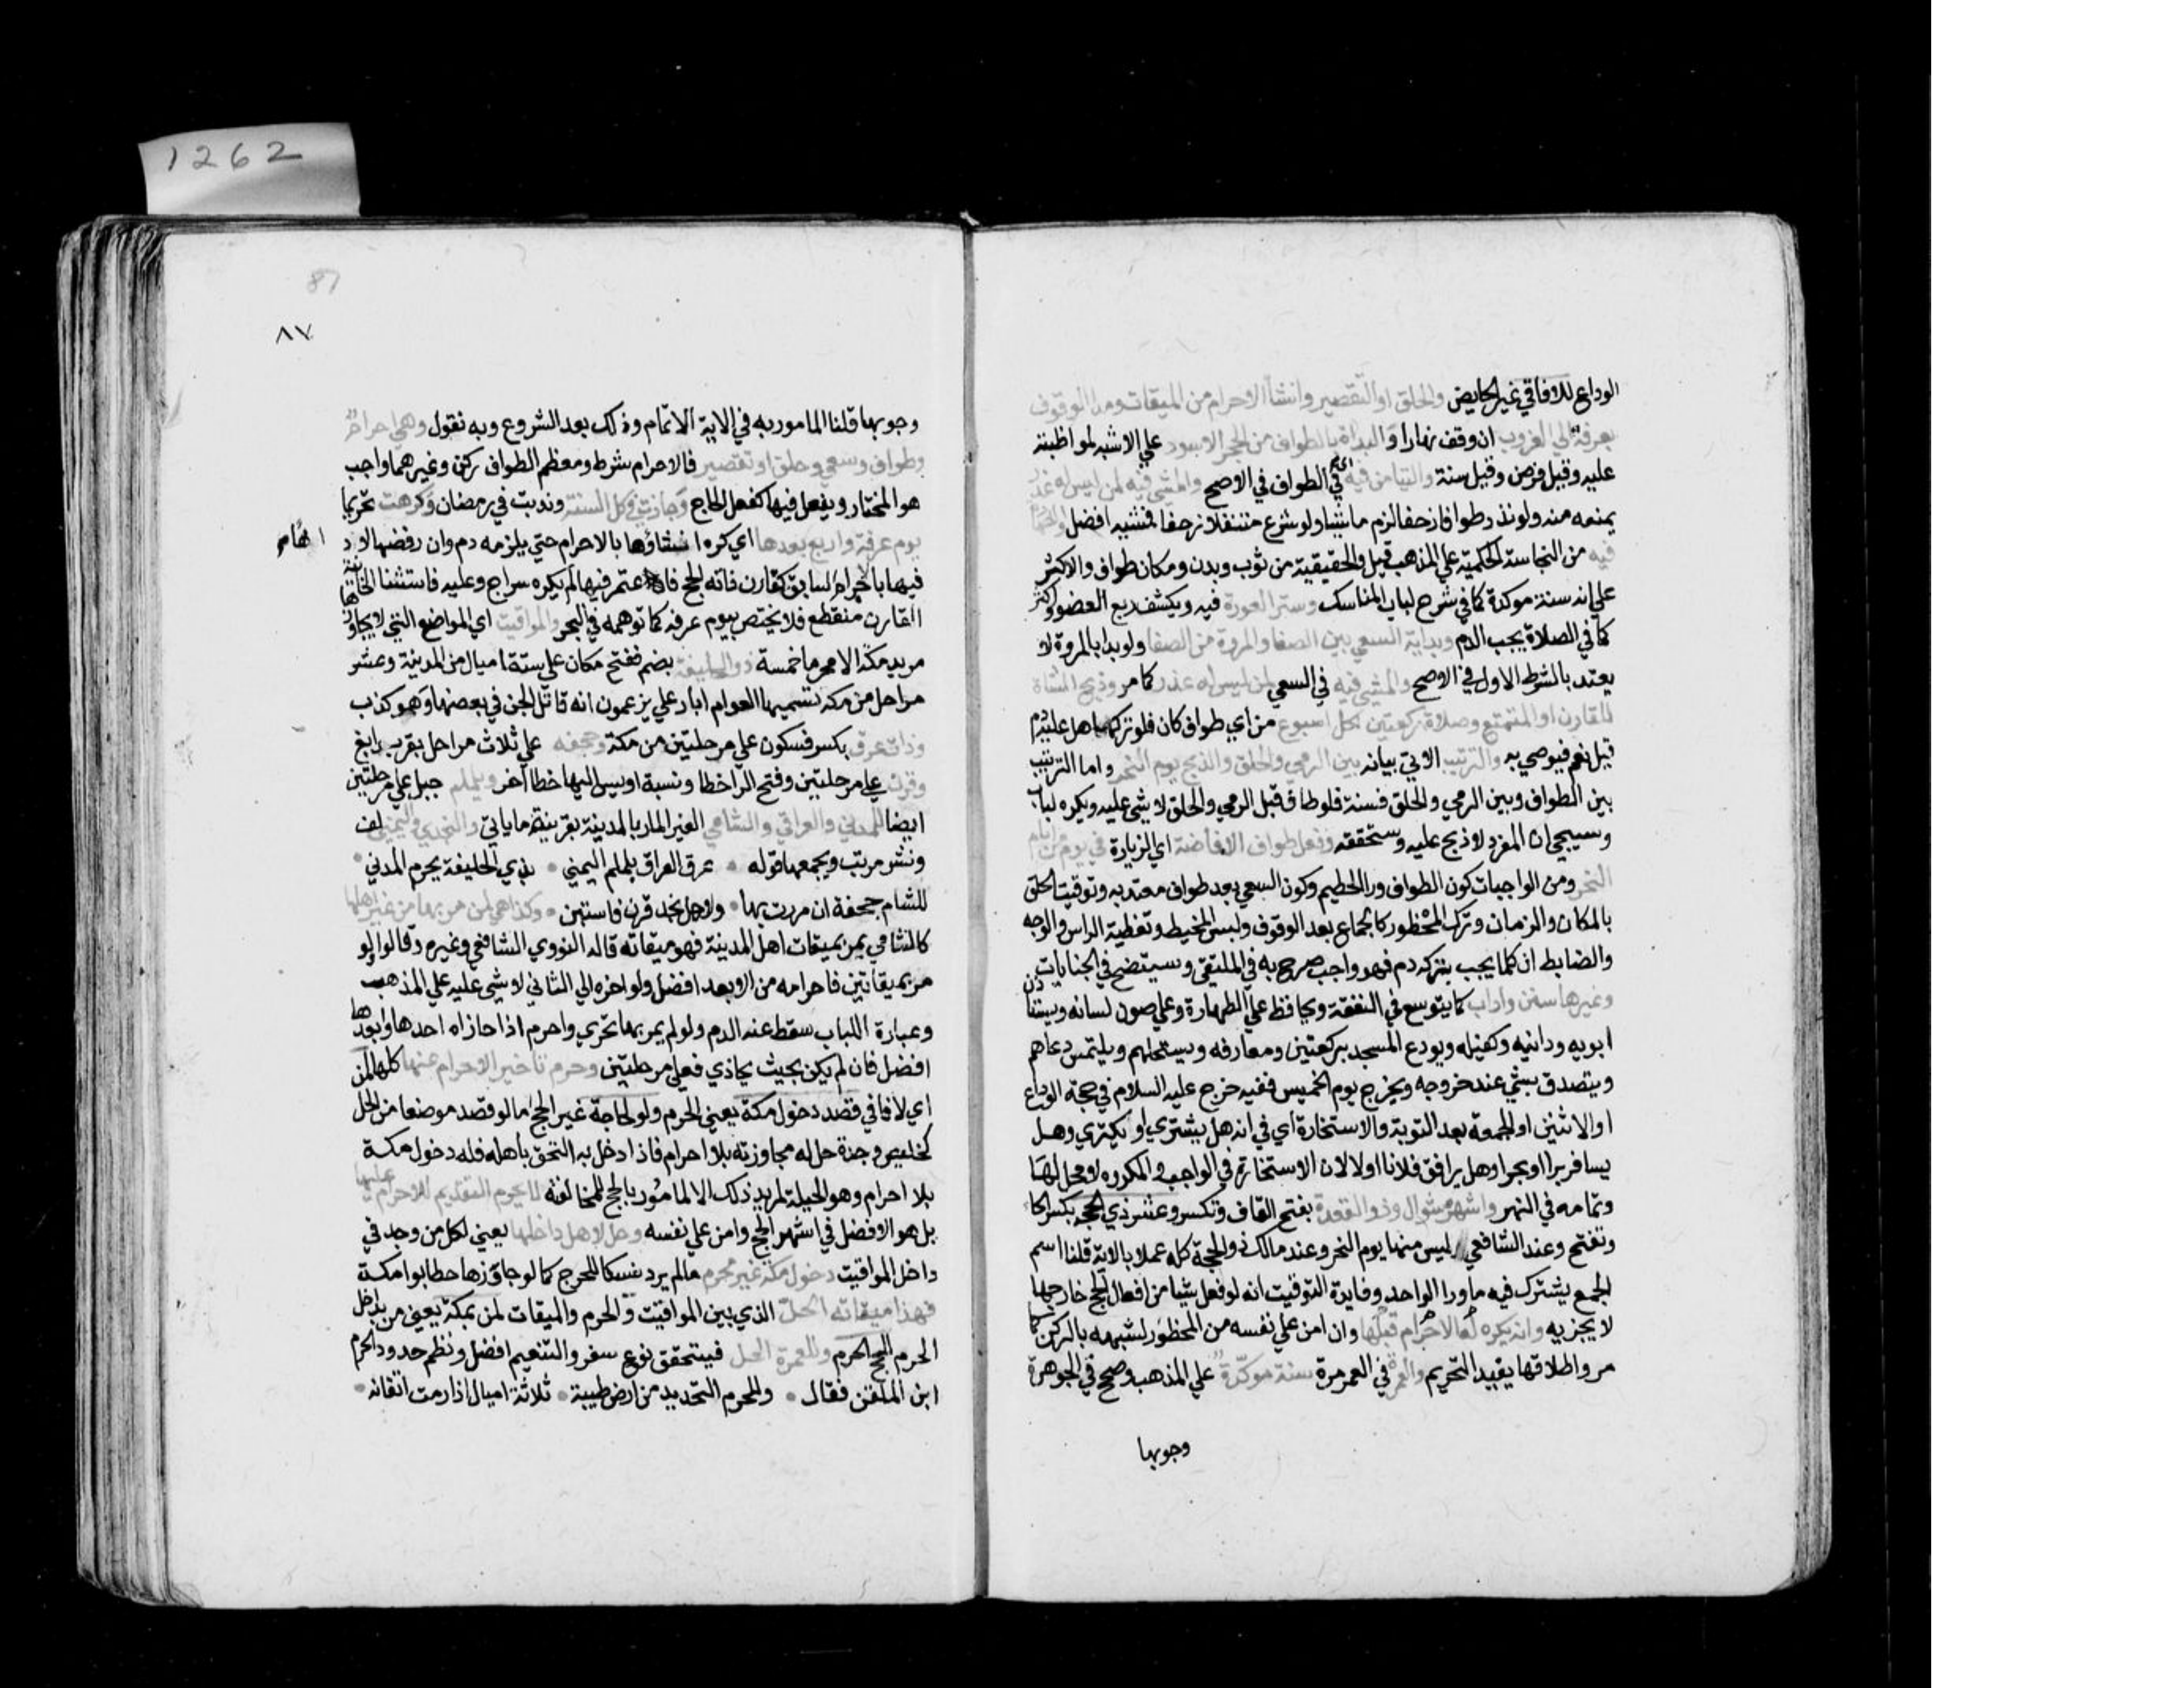 1262
الوداع للافاقي غير الحايض والحلق او التقصير وانشأ الاحرام من الميقات ومد الوقوف
بعرفة الي الغروب ان وقف نهارا و البداة بالطواف من الحجر الاسود علي الاشبه لمواظبته
عليه وقيل فرض وقيل سنة والتيامن فيه اي في الطواف في الاصح والمشي فيه لمن ليس له عذر
يمنعه منه ولو نذر طوافا زحفا لزم ماشيا ولو شرع متنفلا زحفا فمشيه افضل
فيه من النجاسة الحكمية علي المذهب قيل والحقيقية من ثوب وبدن ومكان طواف والاكثر
علي انه سنة موكدة كما في شرح لباب المناسك وستر العورة فيه وبكشف ربع العضو فاكثر
كما في الصلاة يجب الدم وبداية السعي بين الصفا والمروة من الصفا ولو بدا بالمروة لا
يعتد بالشرط الاول في الاصح والمشي فيه في السعي لمن ليس له عذر كما مر وذبح الشاة
للقارن او المتمتع وصلاة ركعتين لكل اسبوع من اي طواف كان فلو تركها هل عليه دم
قيل نعم فيوصي به والترتيب الاتي بيانه بين الرمي والحلق والذبح يوم النحر واما الترتيب
بين الطواف وبين الرمي والحلق فسنة فلو طاف قبل الرمي والحلق لا شي عليه ويكره لباب
وسيجي ان المفرد لا ذبح عليه وسنحققه وفعل طواف الافاضة اي الزيارة في يوم من ايام
النحر ومن الواجبات كون الطواف ورا الحطيم وكون السعي بعد طواف معتد به وتوقيت الحلق
بالمكان والزمان وترك المحظور كالجماع بعد الوقوف ولبس المخيط وتغطية الراس والوجه
والضابط ان كلما يجب بتركه دم فهو واجب صرح به في الملتقي وسيتضح في الجنايات
وغيرها سنن واداب كان يتوسع في النفقة ويحافظ علي الطهارة وعلي صون لسانه ويستاذن
ابويه ودائنه وكفيله ويودع المسجد بركعتين ومعارفه ويستحلهم ويلتمس دعاهم
ويتصدق بشي عند خروجه ويخرج يوم الخميس ففيه خرج عليه السلام في حجة الوداع
او الاثنين او الجمعة بعد التوبة والاستخارة اي في انه هل يشتري او يكتري وهل
يسافر برا او بحرا وهل يرافق فلانا او لا لان الاستخارة في الواجب والمكروه لا محل لها
وتمامه في النهر واشهره شوال وذو القعدة بفتح القاف وتكسر وعشر ذي الحجة بكسر الحا
وتفتح وعند الشافعي ليس منها يوم النحر وعند مالك ذو الحجة كله عملا بالاية قلنا اسم
الجمع يشترك فيه ما ورا الواحد وفايدة التوقيت انه لو فعل شيا من افعال الحج خارجها
لا يجزيه وانه يكره له الاحرام قبلها وان امن علي نفسه من المحظور لشبهه بالركن كما
مر واطلاقها يفيد التحريم والعمرة في العمر مرة سنة موكدة علي المذهب وصحح في الجوهرة
وجوبها
87
٨٧
وجوبها قلنا المامور به في الاية الاتمام وذلك بعد الشروع وبه نقول وهي احرام
وطواف وسعي وحلق او تقصير فالاحرام شرط ومعظم الطواف ركن وغيرهما واجب
هو المختار ويفعل فيها كفعل الحاج وجازت في كل السنة وندبت في رمضان وكرهت تحريما
يوم عرفة واربع بعدها اي كره انشاؤها بالاحرام حتي يلزمه دم وان رفضها لا
فيها بالاحرام السابق كقارن فاته الحج فاعتمر فيها لم يكره سراج وعليه فاستثنا الخانية
القارن منقطع فلا يختص بيوم عرفه كما توهمه في البحر والمواقيت اي المواضع التي لا يجاوزها
مريد مكة الا محرما خمسة ذو الحليفة بضم ففتح مكان علي ستة اميال من المدينة وعشر
مراحل من مكة تسميها العوام ابار علي يزعمون انه قاتل الجن في بعضها وهو كذب
وذات عرق بكسر فسكون علي مرحلتين من مكة وجحفه علي ثلاث مراحل بقرب رابغ
وقرن علي مرحلتين وفتح الرا خطا ونسبة اويس اليها خطا اخر ويلملم جبل علي مرحلتين
ايضا للمدني والعراقي والشامي الغير المار بالمدينة بقرينة ما ياتي والنجدي واليمني لف
ونشر مرتب ويجمعها قوله عرق العراق يلملم اليمني بذي الحليفة يحرم المدني
للشام جحفة ان مررت بها ولاهل نجد قرن فاستبن وكذا هي لمن مر بها من غير اهلها
كالشامي يمر بميقات اهل المدينة فهو ميقاته قاله النووي الشافعي وغيره وقالوا لو
مر بميقاتين فاحرامه من الابعد افضل ولو اخره الي الثاني لا شي عليه علي المذهب
وعبارة اللباب سقط عنه الدم ولو لم يمر بها تحري واحرم اذا حازاه احدها وابعدها
افضل فان لم يكن بحيث يحاذي فعلي مرحلتين وحرم تاخير الاحرام عنها كلها لمن
اي لافاقي قصد دخول مكة يعني الحرم ولو لحاجة غير الحج اما لو قصد موضعا من الحل
كخليص وجدة حل له مجاوزته بلا احرام فاذا دخل به التحق باهله فله دخول مكة
بلا احرام وهو الحيلة لمريد ذلك الا لمامور بالحج للمخالفة لا يحرم التقديم للاحرام عليها
بل هو الافضل في اشهر الحج وامن علي نفسه وحل لاهل داخلها يعني لكل من وجد في
داخل المواقيت دخول مكة غير محرم ما لم يرد نسكا للحرج كما لو جاوزها حطابوا مكة
فهذا ميقاته الحل الذي بين المواقيت والحرم والميقات لمن بمكة يعني من بداخل
الحرم للحج الحرم وللعمرة الحل فيتحقق نوع سفر والتنعيم افضل ونظم حدود الحرم
ابن الملقن فقال وللحرم التحديد من ارض طيبة ثلاثة اميال اذا رمت اتقانه